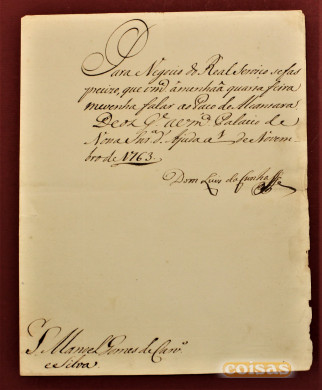 Para Negocio do Real Serviço se faz
precizo, que vm.ce âmenhaã quarta feira
me venha falar ao Paço de Alcantara
Deos G.e a vm.ce Palacio de
Nossa Snr.a d'Ajuda a 1 de Novem-
bro de 1763
Dom Luis da Cunha
S.r Manoel Gomes de Carv.o
e Silva
coisas